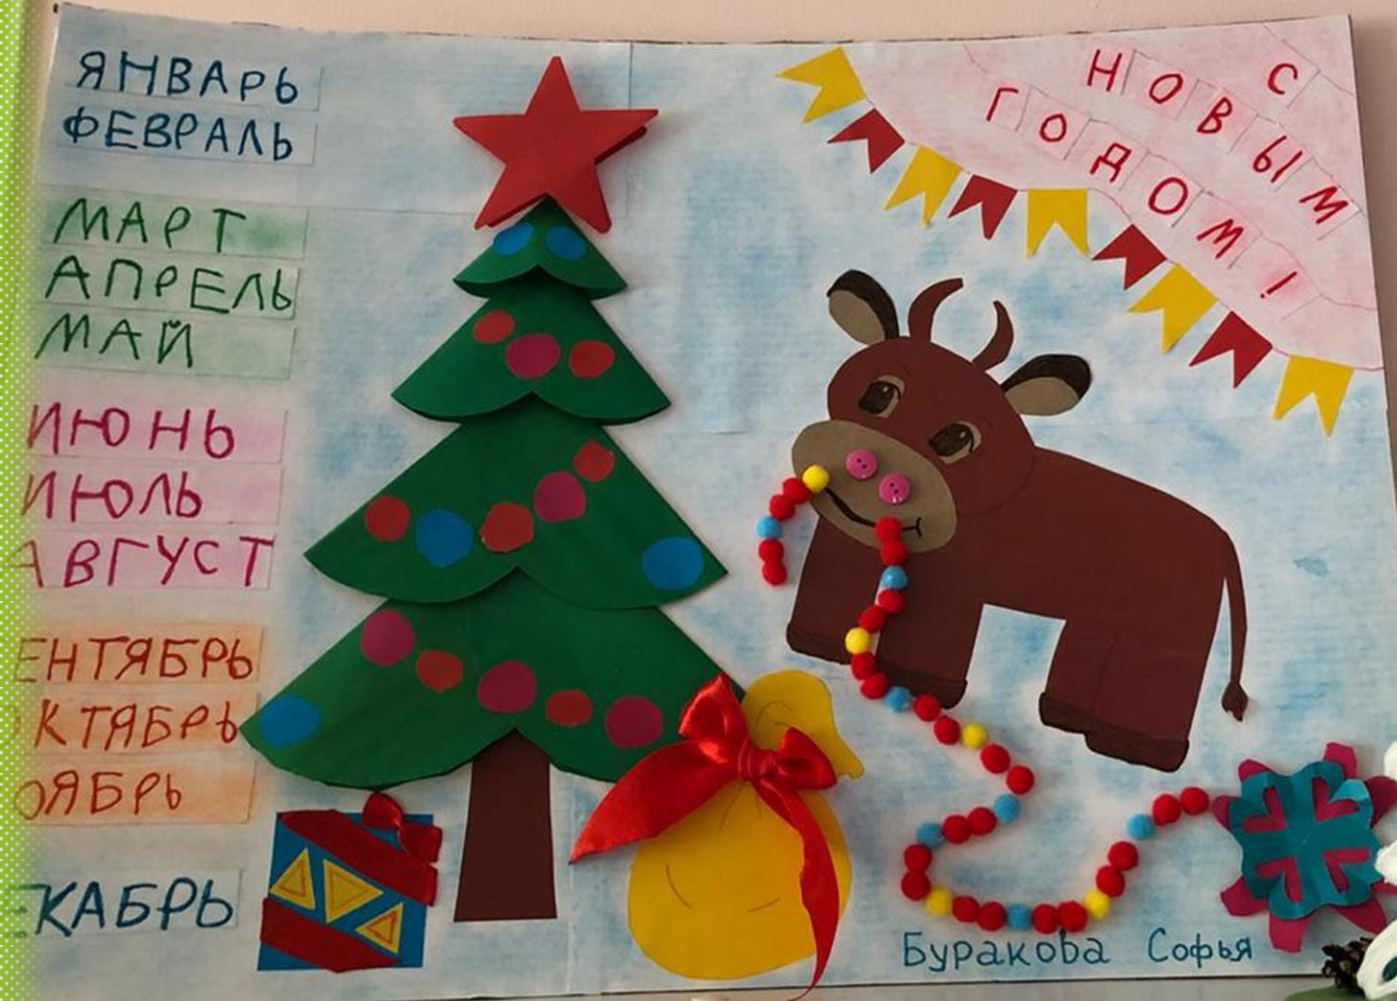 ЯНВАРЬ
ФЕВРАЛЬ
МАРТ
АПРЕЛЬ
МАЙ
ИЮНЬ
ИЮЛЬ
АВГУСТ
ЕНТЯБРЬ
КТЯБРЬ
ОЯБРЬ
ЕКАБРЬ
С
НОВЫМ
ГОДОМ!
Буракова Софья